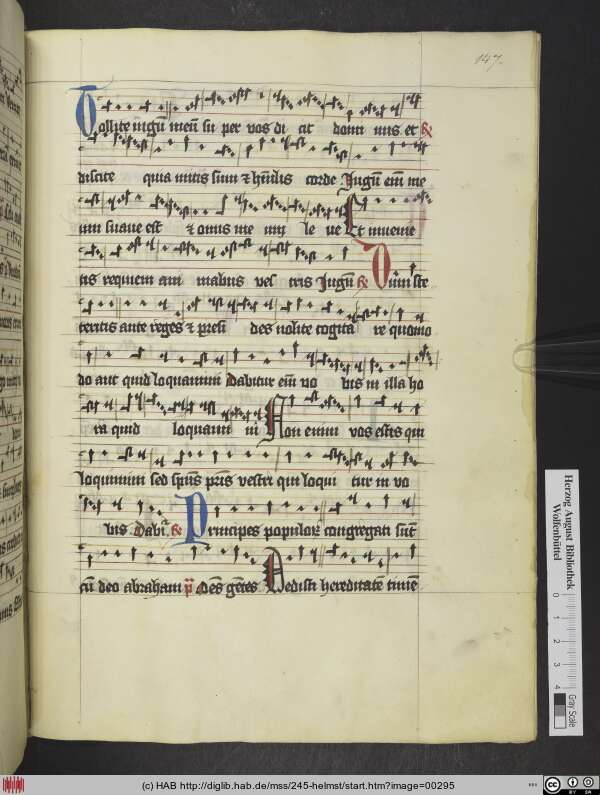 147.
Tollite iugū meū su per vos di cit domi nus et R
discite quia mitis sum et hūilis corde Iugū em̄ me
um suaue est et onus me um le ve Et inuenie
tis requiem ani mabus ves tris Iugū R Dūm ste
teritis ante reges et presi des nolite cogita re quomo
do aut quid loquamini Dabitur em̄ vo bis in illa ho
ra quid loquami ni Non enim vos estis qui
loquimini sed spūs pris vestri qui loqui tur in vo
bis Dabit̄ R Principes populor congregati sūt
cū deo abraham p̄ Oēs gētes Dedisti hereditatē timē
Herzog August Bibliothek
Wolfenbüttel
0 1 2 3 4
Gray Scale
(c) HAB http://diglib.hab.de/mss/245-helmst/start.htm?image=00295